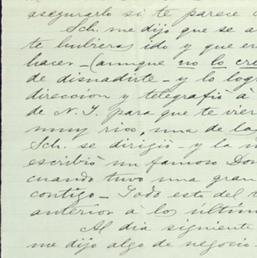 asegurarlo si te parece
Sch. me dijo que se a
te hubieras ido y que er
hacer - (aunque no lo cre
de disuadirte - y lo logr
direccion y telegrafió á
de N. Y. para que te vier
muy rico, una de la
Sch. se dirigió - y la
escribió un famoso Don
cuando tuvo una gran
contigo - Todo esto del
anterior a los últim
Al dia siguiente
me dijo algo de negocio